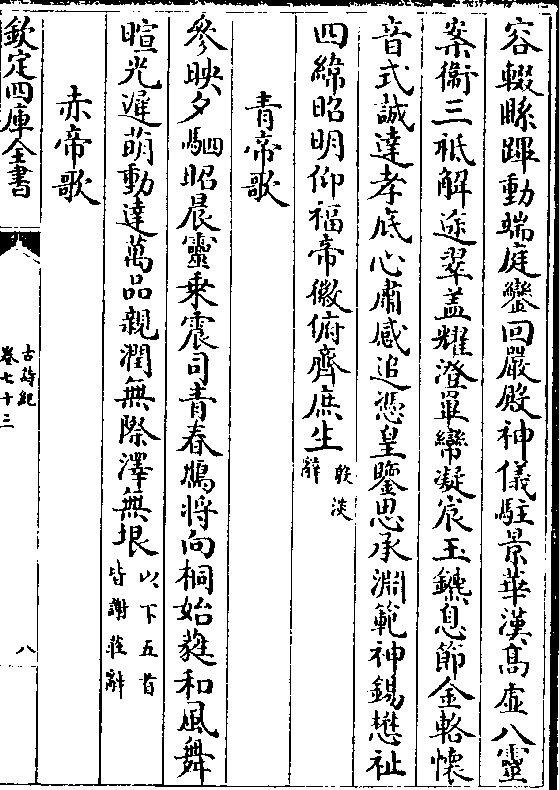 容輟縣蹕動端庭鑾回嚴殿神儀駐景華漢髙虚八靈
案衞三祗解途翠盖耀澄畢帟凝宸玉鑣息節金輅懐
音式誠達孝底心肅感追憑皇鑒思承淵範神錫懋祉
四緯昭明仰福帝徽俯齊庶生殷淡辭
青帝歌
參映夕駟昭晨靈乗震司青春鴈将向桐始蕤和風舞
暄光遲萌動達萬品親潤無際澤無垠以下五首皆謝莊辭
赤帝歌
欽定四庫全書
古詩紀
卷七十三
八